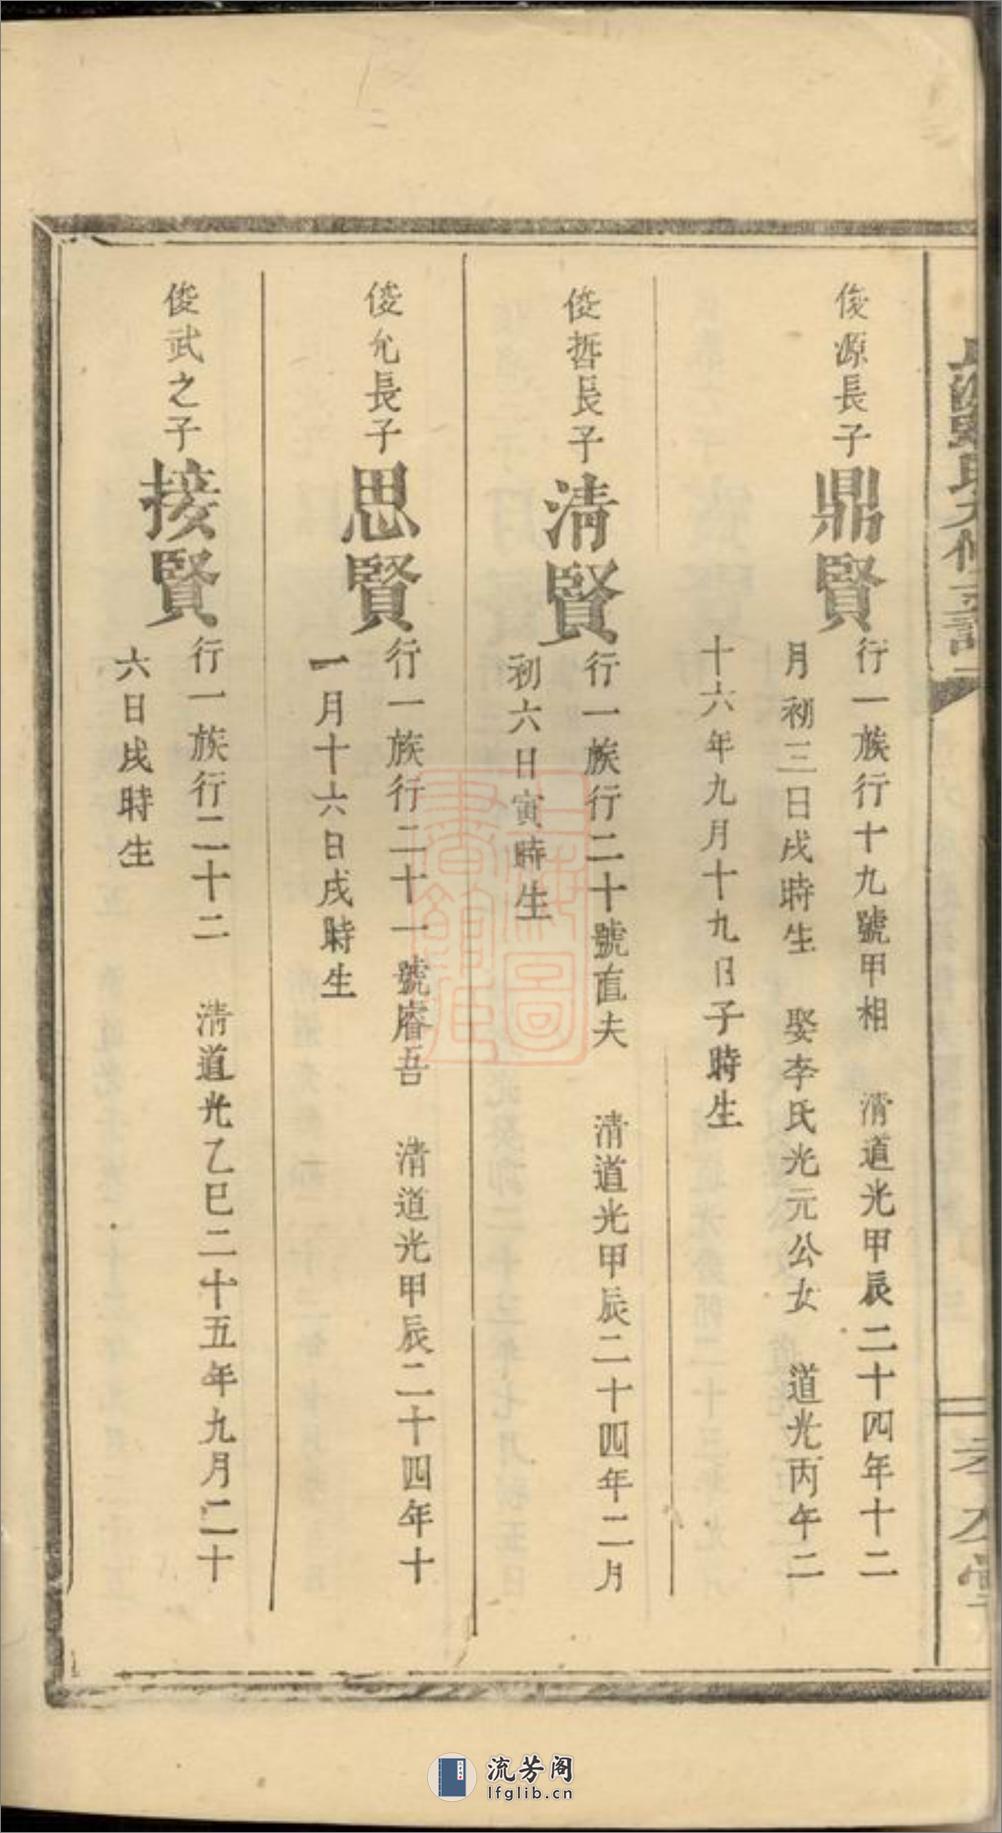 俊源長子
鼎賢
行一族行十九號甲相 清道光甲辰二十四年十二
月初三日戌時生 娶李氏光元公女 道光丙午二
十六年九月十九日子時生
俊哲長子
清賢
行一族行二十號直夫 清道光甲辰二十四年二月
初六日寅時生
俊允長子
思賢
行一族行二十一號睿吾 清道光甲辰二十四年十
一月十六日戌時生
俊武之子
接賢
行一族行二十二 清道光乙巳二十五年九月二十
六日戌時生
流芳阁
lfglib.cn